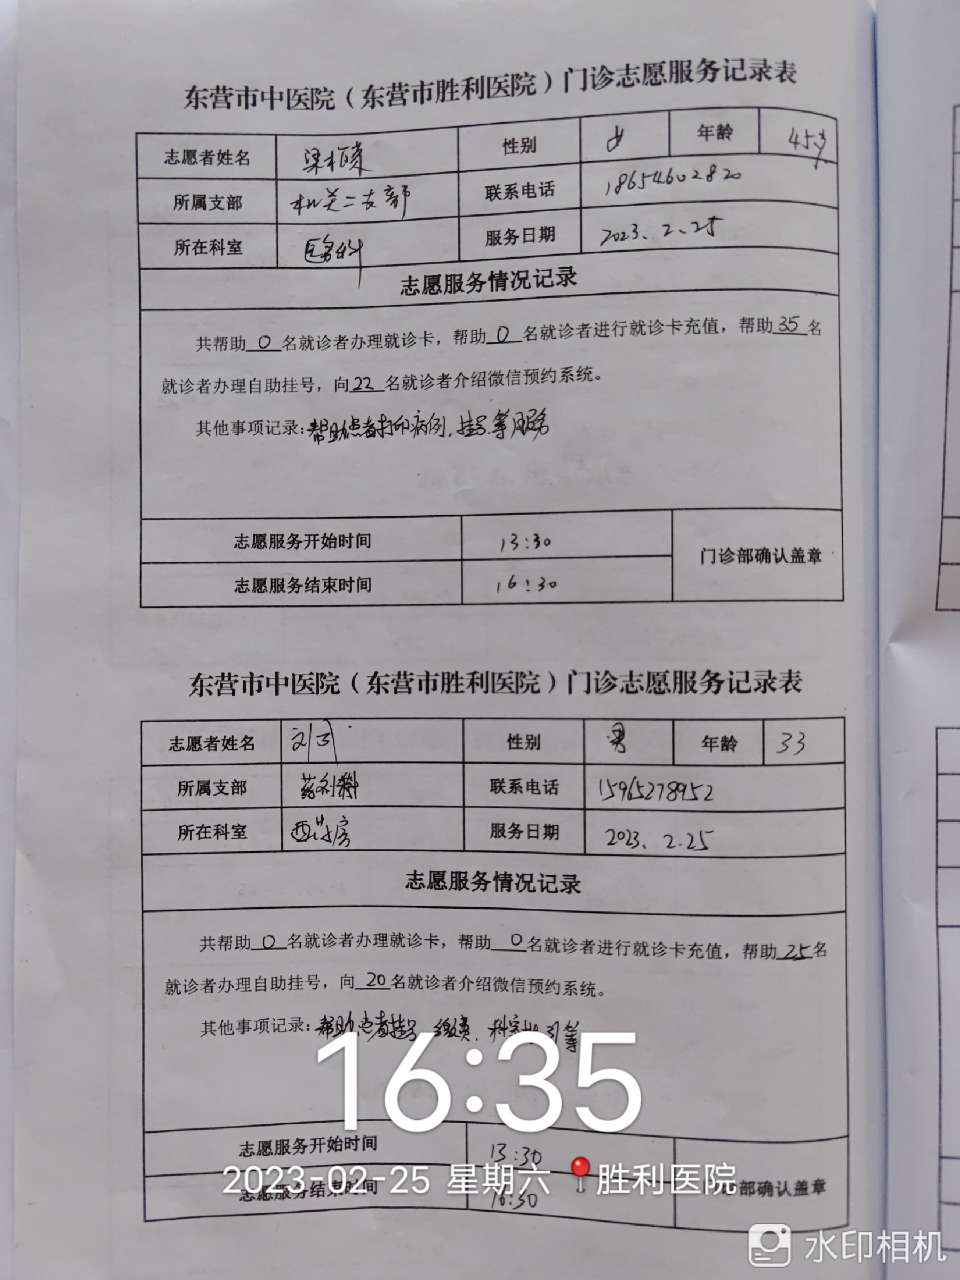 东营市中医院（东营市胜利医院）门诊志愿服务记录表
志愿者姓名 梁 性别 女 年龄 45岁
所属支部 机关二支部 联系电话 18654602820
所在科室 医务科 服务日期 2023.2.25
志愿服务情况记录
共帮助0名就诊者办理就诊卡，帮助0名就诊者进行就诊卡充值，帮助35名
就诊者办理自助挂号，向22名就诊者介绍微信预约系统。
其他事项记录:帮助患者打印病例,挂号等服务
志愿服务开始时间 13:30
门诊部确认盖章
志愿服务结束时间 16:30
东营市中医院（东营市胜利医院）门诊志愿服务记录表
志愿者姓名 刘 性别 男 年龄 33
所属支部 药剂科 联系电话 15965278952
所在科室 西药房 服务日期 2023.2.25
志愿服务情况记录
共帮助0名就诊者办理就诊卡，帮助0名就诊者进行就诊卡充值，帮助25名
就诊者办理自助挂号，向20名就诊者介绍微信预约系统。
其他事项记录:帮助患者挂号 缴费,科室指引等
16:35
志愿服务开始时间 13:30
2023-02-25 星期六 胜利医院
志愿服务结束时间 16:30 门诊部确认盖章
水印相机